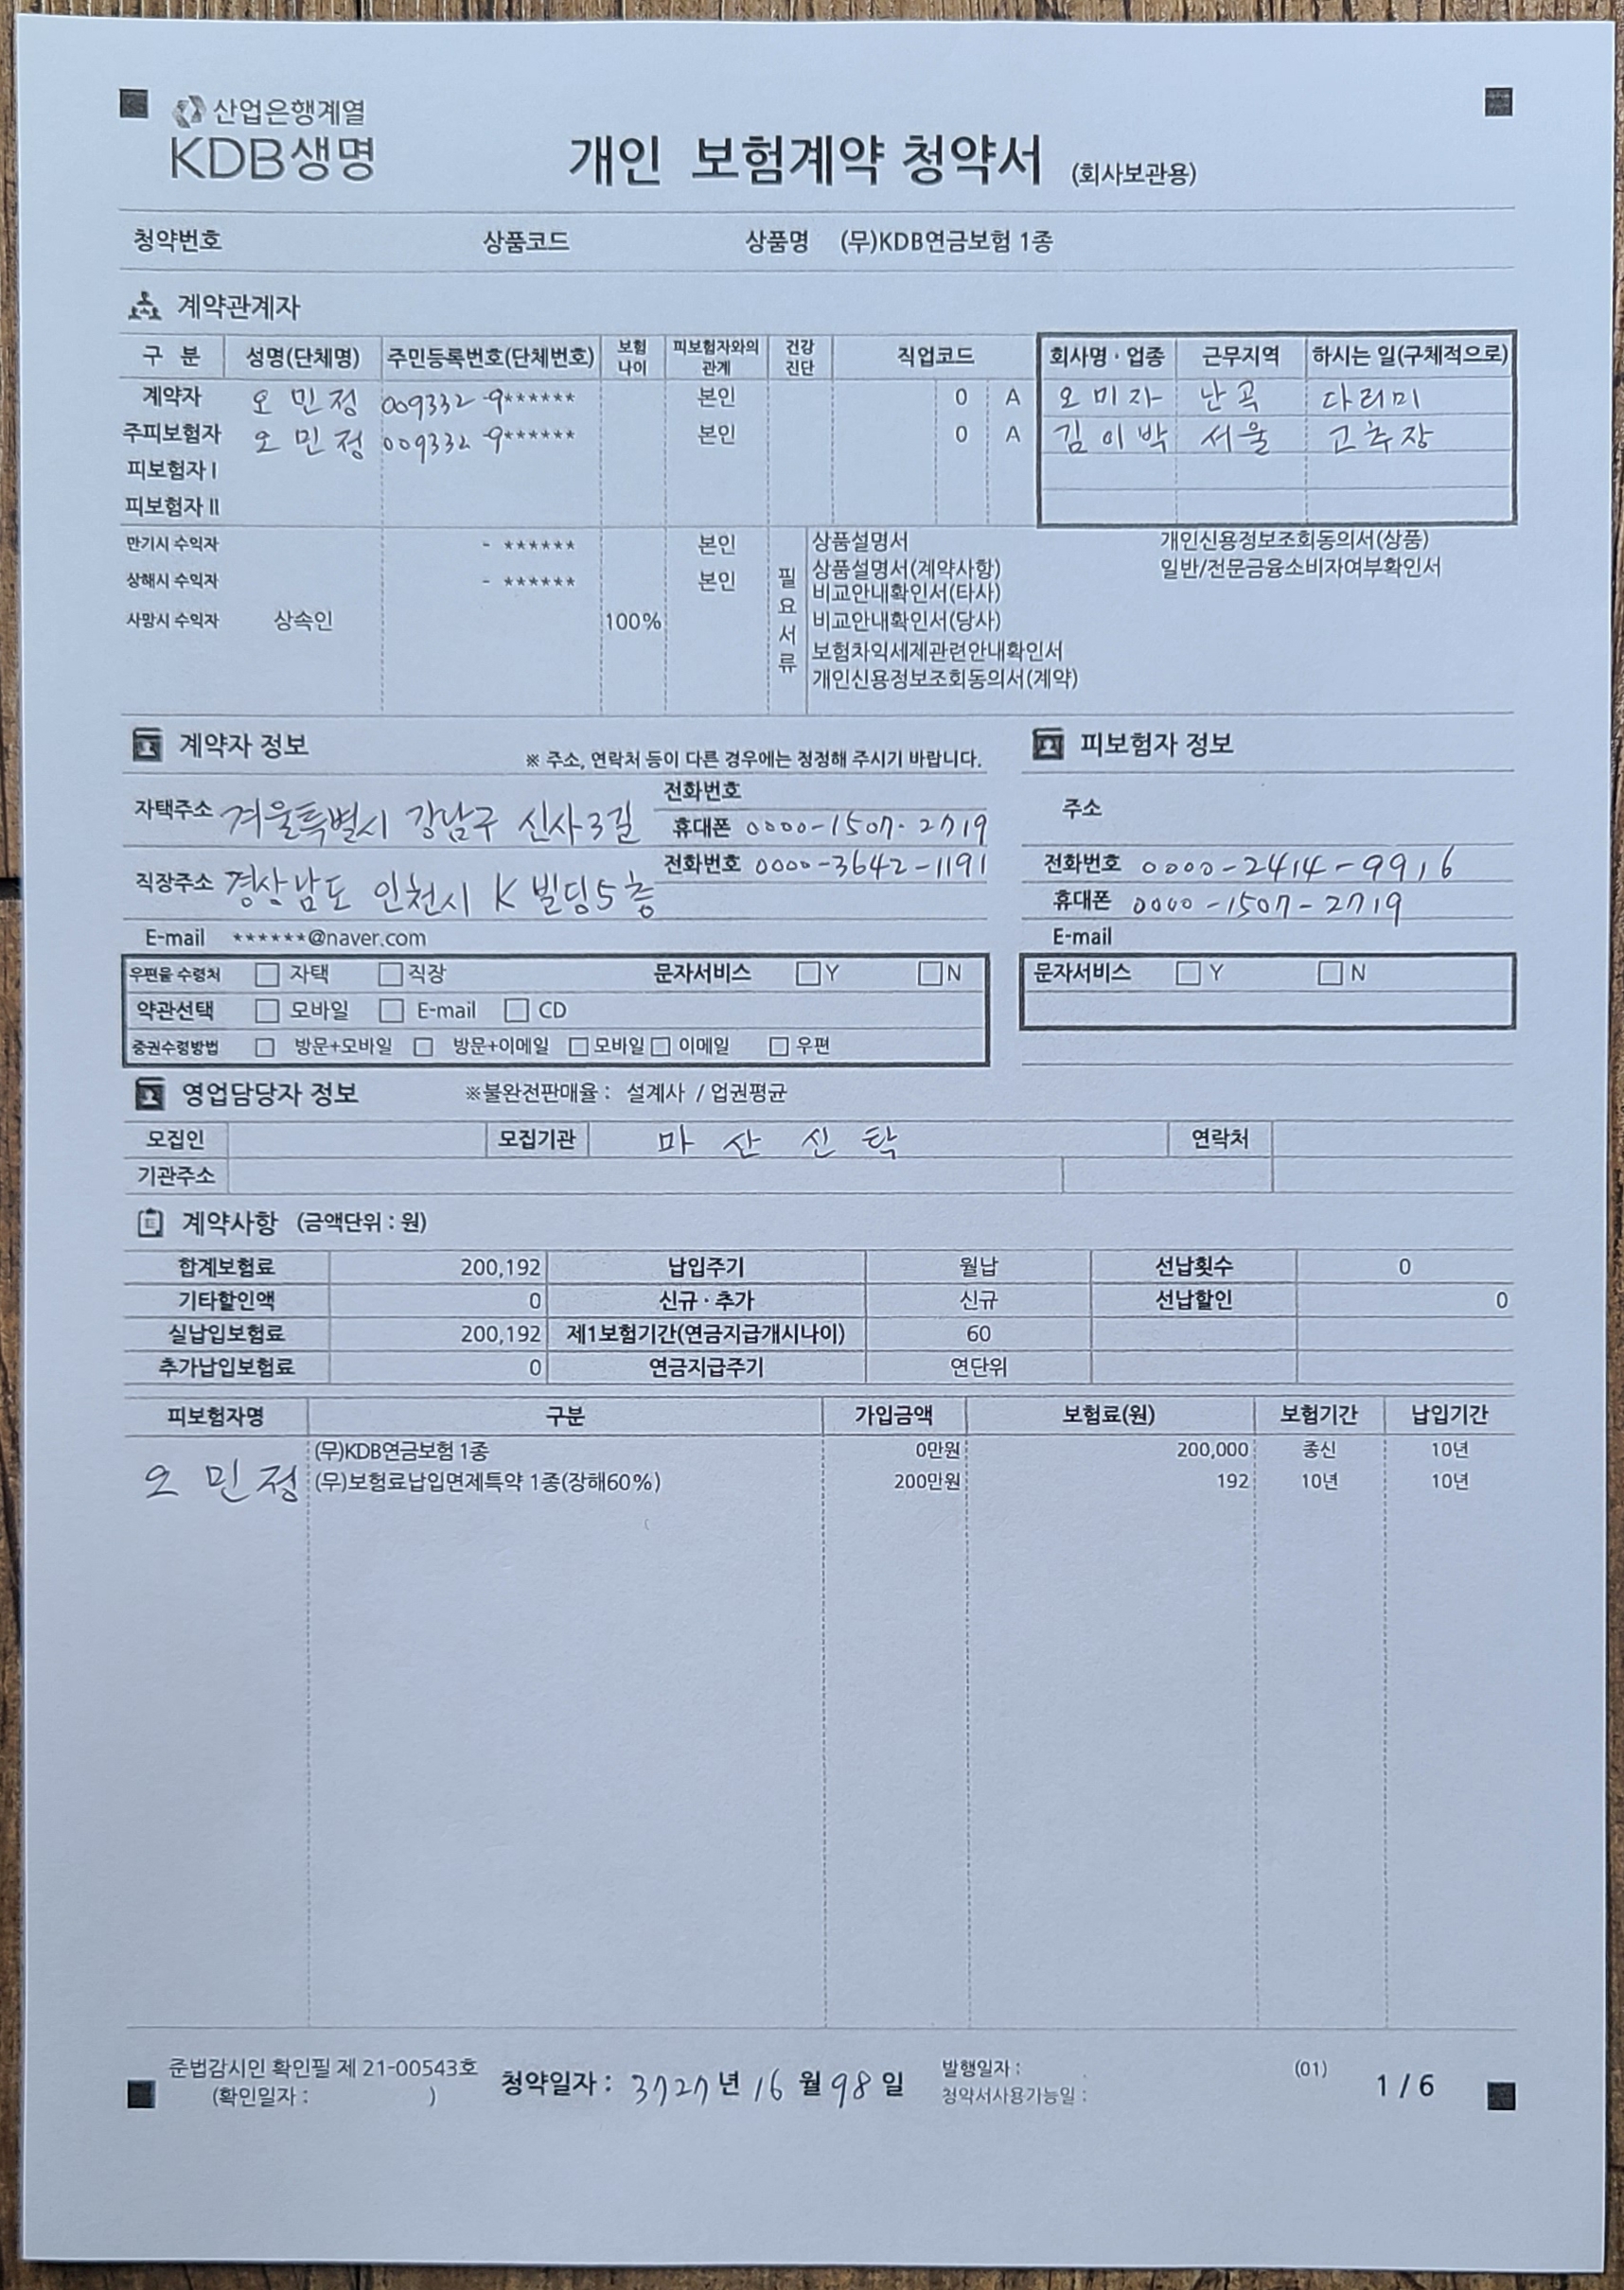 산업은행계열
KDB생명
개인 보험계약 청약서 (회사보관용)
청약번호 상품코드 상품명 (무)KDB연금보험 1종
계약관계자
구 분 성명(단체명) 주민등록번호(단체번호) 보험나이 피보험자와의 관계 건강진단 직업코드 회사명·업종 근무지역 하시는 일(구체적으로)
계약자 오민정 009332-9****** 본인 0 A 오미자 난곡 다리미
주피보험자 오민정 009332-9****** 본인 0 A 김이박 서울 고추장
피보험자 I
피보험자 II
만기시 수익자 - ****** 본인
상해시 수익자 - ****** 본인
사망시 수익자 상속인 100%
필요서류
상품설명서 개인신용정보조회동의서(상품)
상품설명서(계약사항) 일반/전문금융소비자여부확인서
비교안내확인서(타사)
비교안내확인서(당사)
보험차익세제관련안내확인서
개인신용정보조회동의서(계약)
계약자 정보 ※ 주소, 연락처 등이 다른 경우에는 정정해 주시기 바랍니다.
자택주소 겨울특별시 강남구 신사3길 전화번호
휴대폰 0000-1507-2719
직장주소 경상남도 인천시 K빌딩5층 전화번호 0000-3642-1191
E-mail ******@naver.com
우편물 수령처 □ 자택 □ 직장 문자서비스 □ Y □ N
약관선택 □ 모바일 □ E-mail □ CD
증권수령방법 □ 방문+모바일 □ 방문+이메일 □ 모바일 □ 이메일 □ 우편
피보험자 정보
주소
전화번호 0000-2414-9916
휴대폰 0000-1507-2719
E-mail
문자서비스 □ Y □ N
영업담당자 정보 ※불완전판매율 : 설계사 / 업권평균
모집인 모집기관 마산신탁 연락처
기관주소
계약사항 (금액단위 : 원)
합계보험료 200,192 납입주기 월납 선납횟수 0
기타할인액 0 신규·추가 신규 선납할인 0
실납입보험료 200,192 제1보험기간(연금지급개시나이) 60
추가납입보험료 0 연금지급주기 연단위
피보험자명 구분 가입금액 보험료(원) 보험기간 납입기간
(무)KDB연금보험 1종 0만원 200,000 종신 10년
오민정 (무)보험료납입면제특약 1종(장해60%) 200만원 192 10년 10년
준법감시인 확인필 제 21-00543호
(확인일자 : )
청약일자 : 3727년 16월 98일
발행일자 : (01)
청약서사용가능일 :
1 / 6